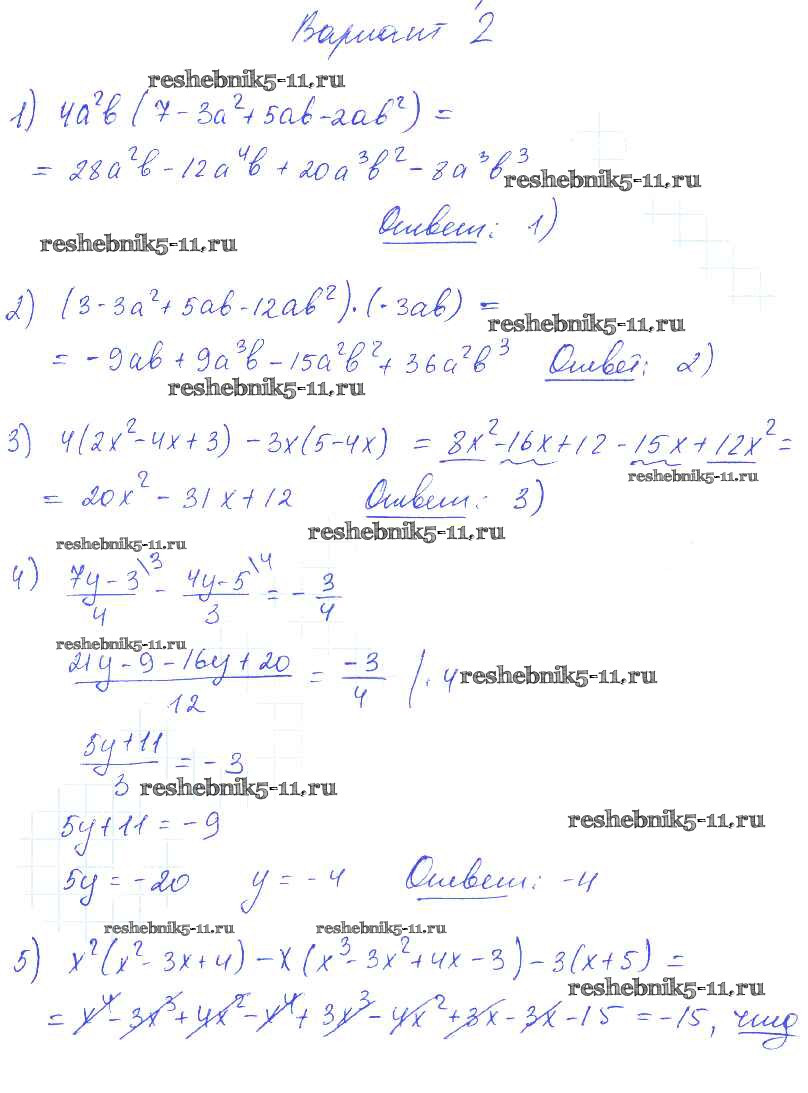 Вариант 2
reshebnik5-11.ru
1) 4a²b (7 - 3a² + 5ab - 2ab²) =
= 28a²b - 12a⁴b + 20a³b² - 8a³b³
reshebnik5-11.ru
Ответ: 1)
reshebnik5-11.ru
2) (3 - 3a² + 5ab - 12ab²)·(-3ab) =
reshebnik5-11.ru
= -9ab + 9a³b - 15a²b² + 36a²b³ Ответ: 2)
reshebnik5-11.ru
3) 4(2x² - 4x + 3) - 3x(5 - 4x) = 8x² - 16x + 12 - 15x + 12x² =
reshebnik5-11.ru
= 20x² - 31x + 12 Ответ: 3)
reshebnik5-11.ru
reshebnik5-11.ru
4) (7y - 3)/4 \3 - (4y - 5)/3 \4 = - 3/4
reshebnik5-11.ru
(21y - 9 - 16y + 20)/12 = -3/4 | · 4
reshebnik5-11.ru
(5y + 11)/3 = -3
reshebnik5-11.ru
5y + 11 = -9
reshebnik5-11.ru
5y = -20 y = -4 Ответ: -4
reshebnik5-11.ru reshebnik5-11.ru
5) x²(x² - 3x + 4) - x(x³ - 3x² + 4x - 3) - 3(x + 5) =
reshebnik5-11.ru
= x⁴ - 3x³ + 4x² - x⁴ + 3x³ - 4x² + 3x - 3x - 15 = -15, чтд